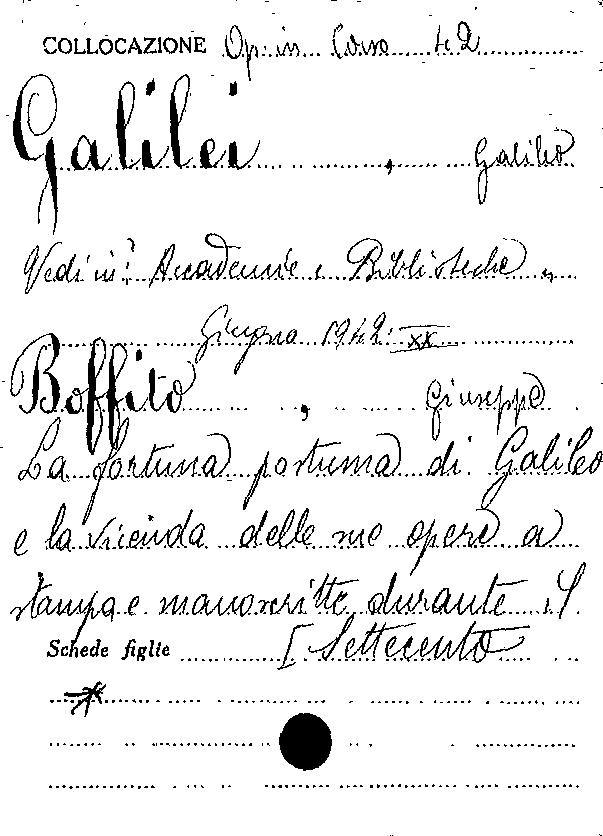 COLLOCAZIONE Op. in Corso 42
Galilei, Galileo
Vedi in: Accademie e Biblioteche "
Giugno 1942 XX
Boffito, Giuseppe
La fortuna postuma di Galileo
e la vicenda delle sue opere a
stampa e manoscritte durante il
Schede figlie [Settecento